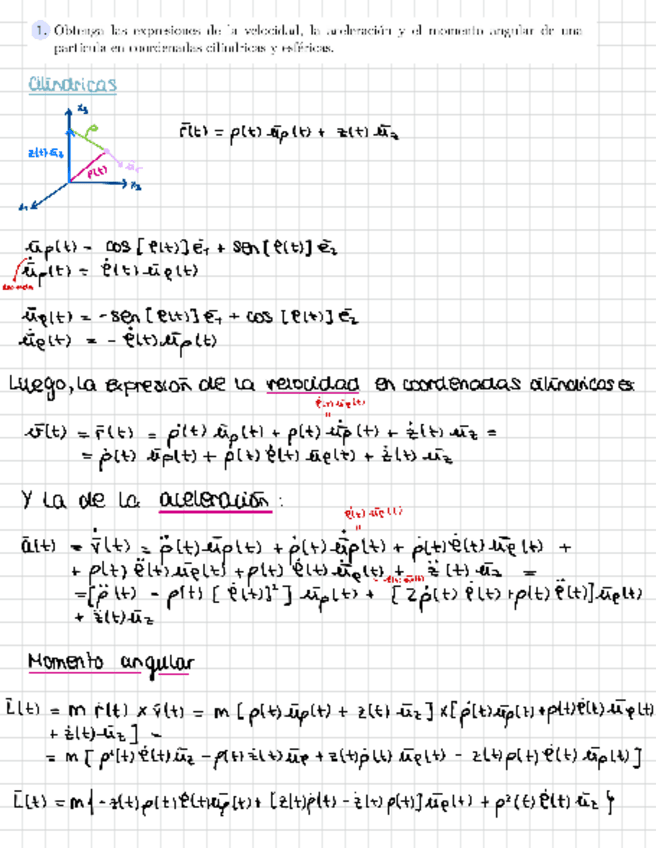 1. Obtenga las expresiones de la velocidad, la aceleración y el momento angular de una
partícula en coordenadas cilíndricas y esféricas.
Cilíndricas
x₃
ρ
z(t) ū_z
ρ(t)
x₂
x₁
r̄(t) = ρ(t) ū_ρ(t) + z(t) ū_z
ū_ρ(t) = cos [φ(t)] ē₁ + sen [φ(t)] ē₂
ū̇_ρ(t) = φ̇(t) ū_φ(t)
ū_φ(t) = - sen [φ(t)] ē₁ + cos [φ(t)] ē₂
ū̇_φ(t) = - φ̇(t) ū_ρ(t)
Luego, la expresión de la velocidad en coordenadas cilíndricas es:
φ̇(t) ū_φ(t)
v̄(t) = r̄̇(t) = ρ̇(t) ū_ρ(t) + ρ(t) ū̇_ρ(t) + ż(t) ū_z =
= ρ̇(t) ū_ρ(t) + ρ(t) φ̇(t) ū_φ(t) + ż(t) ū_z
Y la de la aceleración:
φ̇(t) ū_φ(t)
ā(t) = v̄̇(t) = ρ̈(t) ū_ρ(t) + ρ̇(t) ū̇_ρ(t) + ρ̇(t) φ̇(t) ū_φ(t) +
+ ρ(t) φ̈(t) ū_φ(t) + ρ(t) φ̇(t) ū̇_φ(t) + z̈(t) ū_z =
= [ρ̈(t) - ρ(t) [φ̇(t)]²] ū_ρ(t) + [2ρ̇(t) φ̇(t) + ρ(t) φ̈(t)] ū_φ(t)
+ z̈(t) ū_z
Momento angular
L̄(t) = m r̄(t) × v̄(t) = m [ρ(t) ū_ρ(t) + z(t) ū_z] × [ρ̇(t) ū_ρ(t) + ρ(t) φ̇(t) ū_φ(t)
+ ż(t) ū_z] =
= m [ρ²(t) φ̇(t) ū_z - ρ(t) ż(t) ū_φ + z(t) ρ̇(t) ū_φ(t) - z(t) ρ(t) φ̇(t) ū_ρ(t)]
L̄(t) = m { - z(t) ρ(t) φ̇(t) ū_ρ(t) + [z(t) ρ̇(t) - ż(t) ρ(t)] ū_φ(t) + ρ²(t) φ̇(t) ū_z }